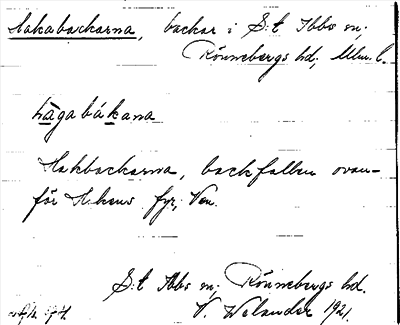 Hakabackarna, backar i S:t Ibbs sn;
Rönnebergs hd; Mlm. l.
hāgabákana
Hakbackarna, backfallen ovan-
för Hakens fyr, Ven.
S:t Ibbs sn; Rönnebergs hd.
V. Welander 1921.